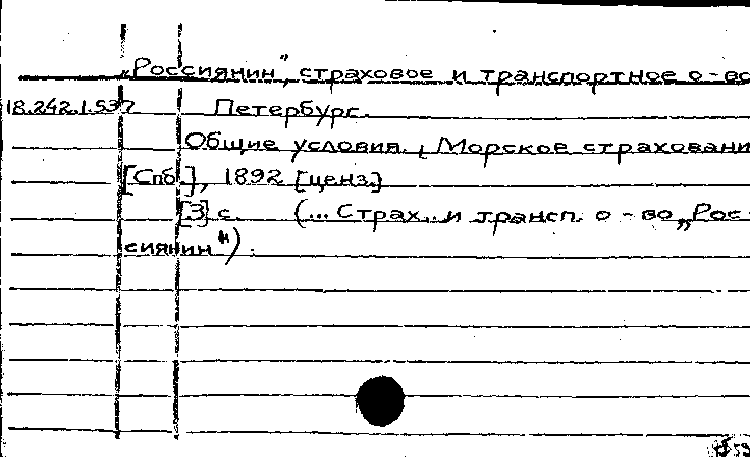 „Россиянин", страховое и транспортное о-во
18.242.1.537 Петербург.
Общие условия. Морское страховани
[Спб.], 1892 [ценз.]
[3] с. (... Страх. и трансп. о-во „Рос-
сиянин").